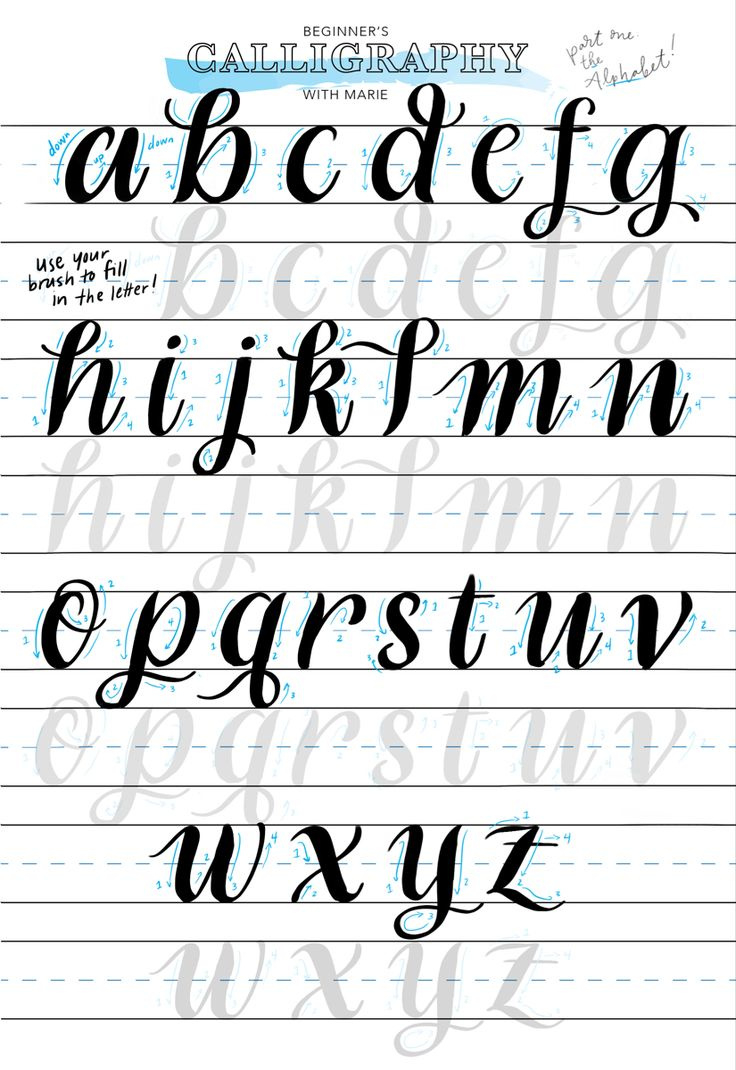 BEGINNER'S
CALLIGRAPHY
WITH MARIE
part one.
the
Alphabet!
down up down
a b c d e f g
b c d e f g
use your
brush to fill
in the letter!
h i j k l m n
h i j k l m n
o p q r s t u v
o p q r s t u v
w x y z
w x y z